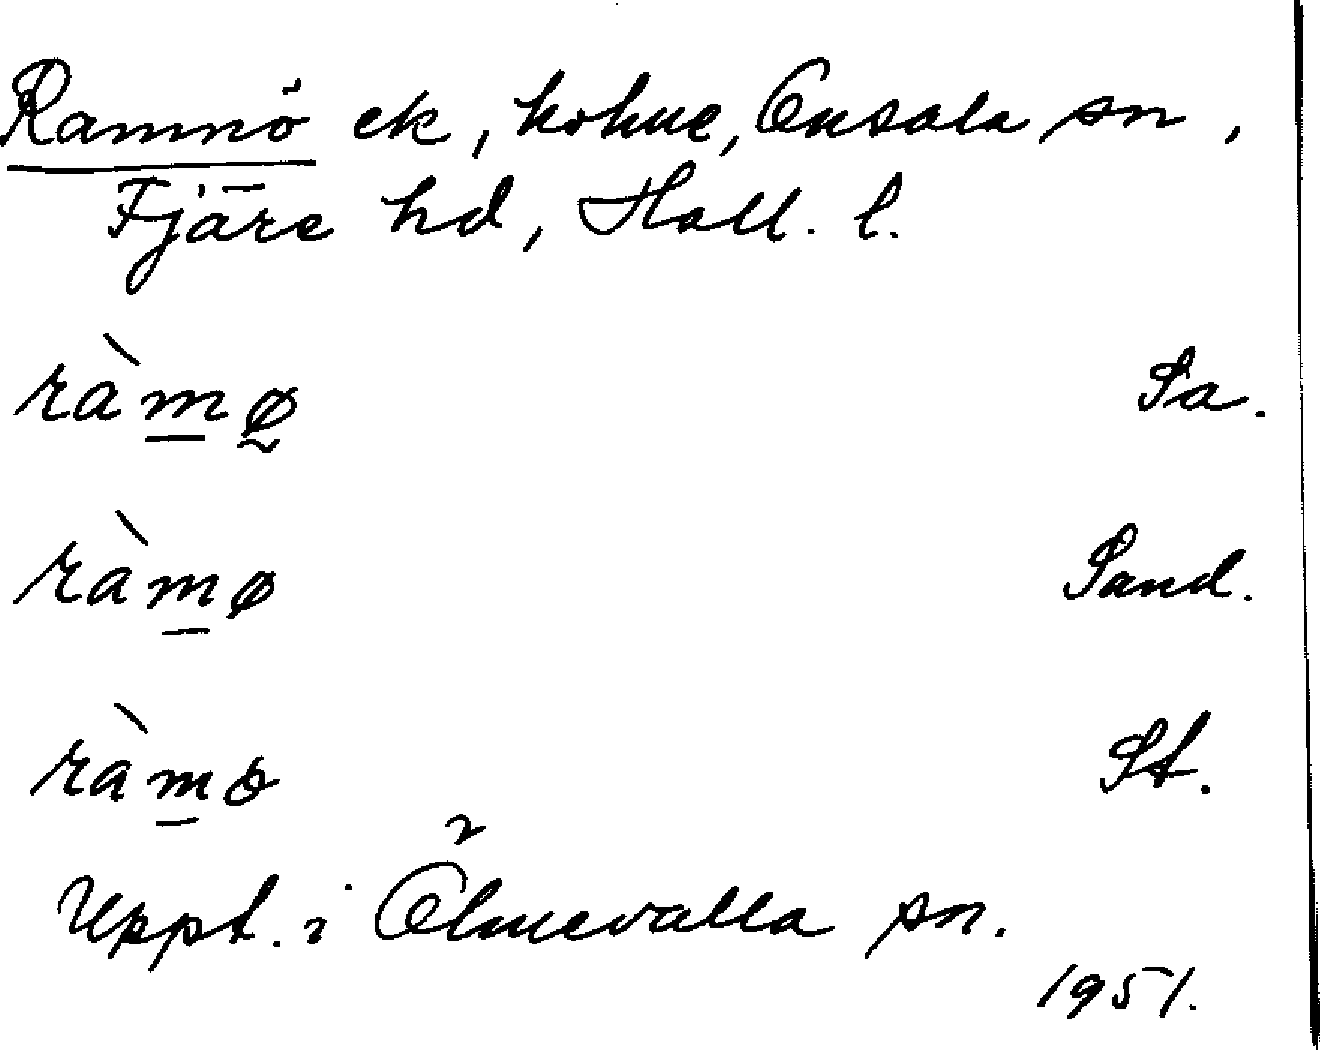 Ramnö ek, holme, Onsala sn,
Fjäre hd, Hall. l.
ràmø̰ Sa.
ràmø Sand.
ràmɵ St.
Uppt. i Ölmevalla sn.
1951.